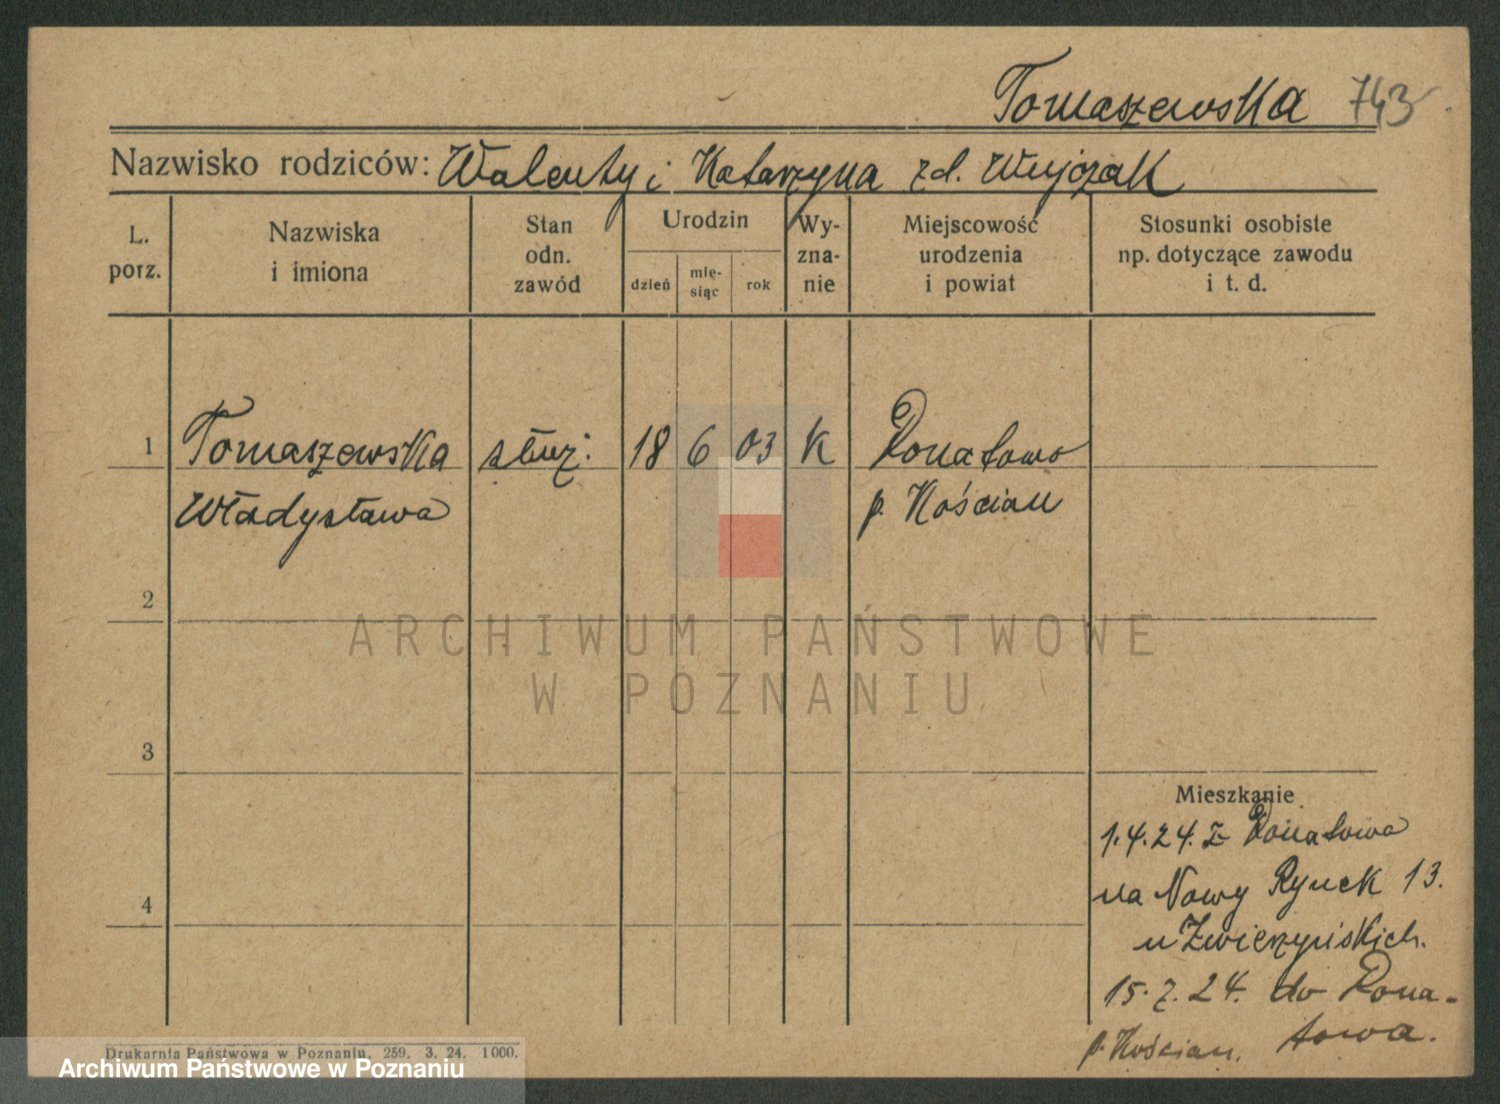 Tomaszewska 743
Nazwisko rodziców: Walenty i Katarzyna zd. Wujczak
L. porz.
Nazwiska i imiona
Stan odn. zawód
Urodzin
dzień
mie-siąc
rok
Wy-zna-nie
Miejscowość urodzenia i powiat
Stosunki osobiste np. dotyczące zawodu i t. d.
1 Tomaszewska służ. 18 6 03 K Donatowo
Władysława p. Kościan
2
3
4
Mieszkanie
1.4.24. z Donatowa
na Nowy Rynek 13.
u Zwierzyńskich.
15.7.24. do Dona-
towa.
p. Kościan.
Drukarnia Państwowa w Poznaniu, 259. 3. 24. 1000.
ARCHIWUM PAŃSTWOWE
W POZNANIU
Archiwum Państwowe w Poznaniu